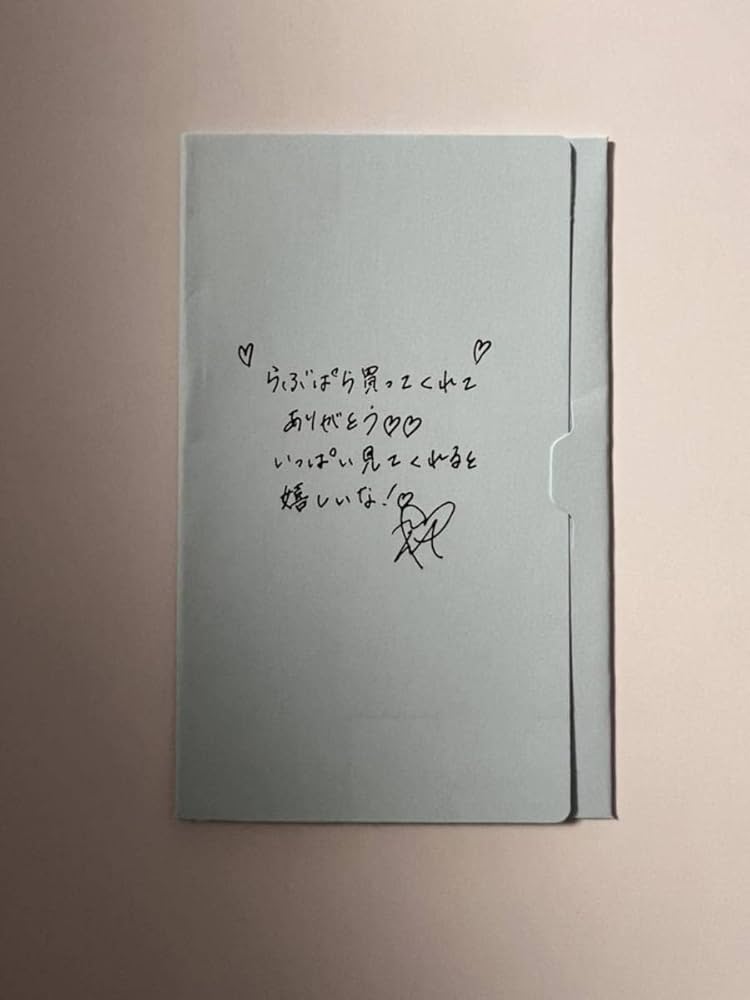 らぶぱら買ってくれて
ありがとう♡♡
いっぱい見てくれると
嬉しいな!♡